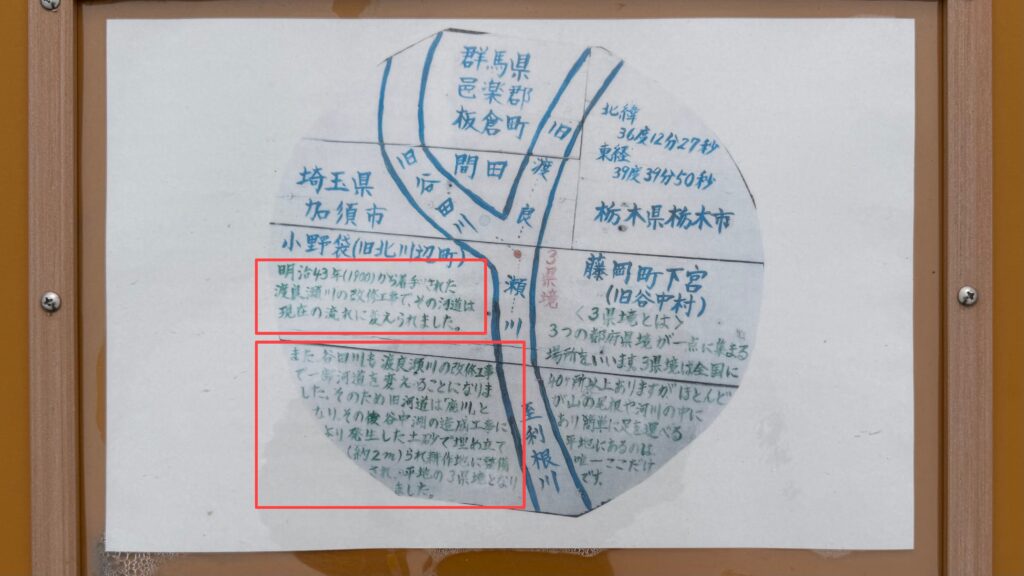 群馬県
邑楽郡
板倉町
間田
旧谷田川
旧渡良瀬川
北緯
36度12分27秒
東経
39度39分50秒
埼玉県
加須市
小野袋(旧北川辺町)
栃木県栃木市
藤岡町下宮
(旧谷中村)
3県境
明治43年(1900)から着手された
渡良瀬川の改修工事で、その河道は
現在の流れに変えられました。
また、谷田川も渡良瀬川の改修工事
で一部河道を変えることになりま
した。そのため旧河道は「廃川」と
なり、その後谷中湖の造成工事に
より発生した土砂で埋め立て
(約2m)られ耕作地に整備
され、平地の3県境となり
ました。
〈3県境とは〉
3つの都府県境が一点に集まる
場所をいいます。3県境は全国に
40ヶ所以上ありますがほとんど
が山の尾根や河川の中に
あり簡単に足を運べる
平地にあるのは
唯一ここだけ
です。
至利根川